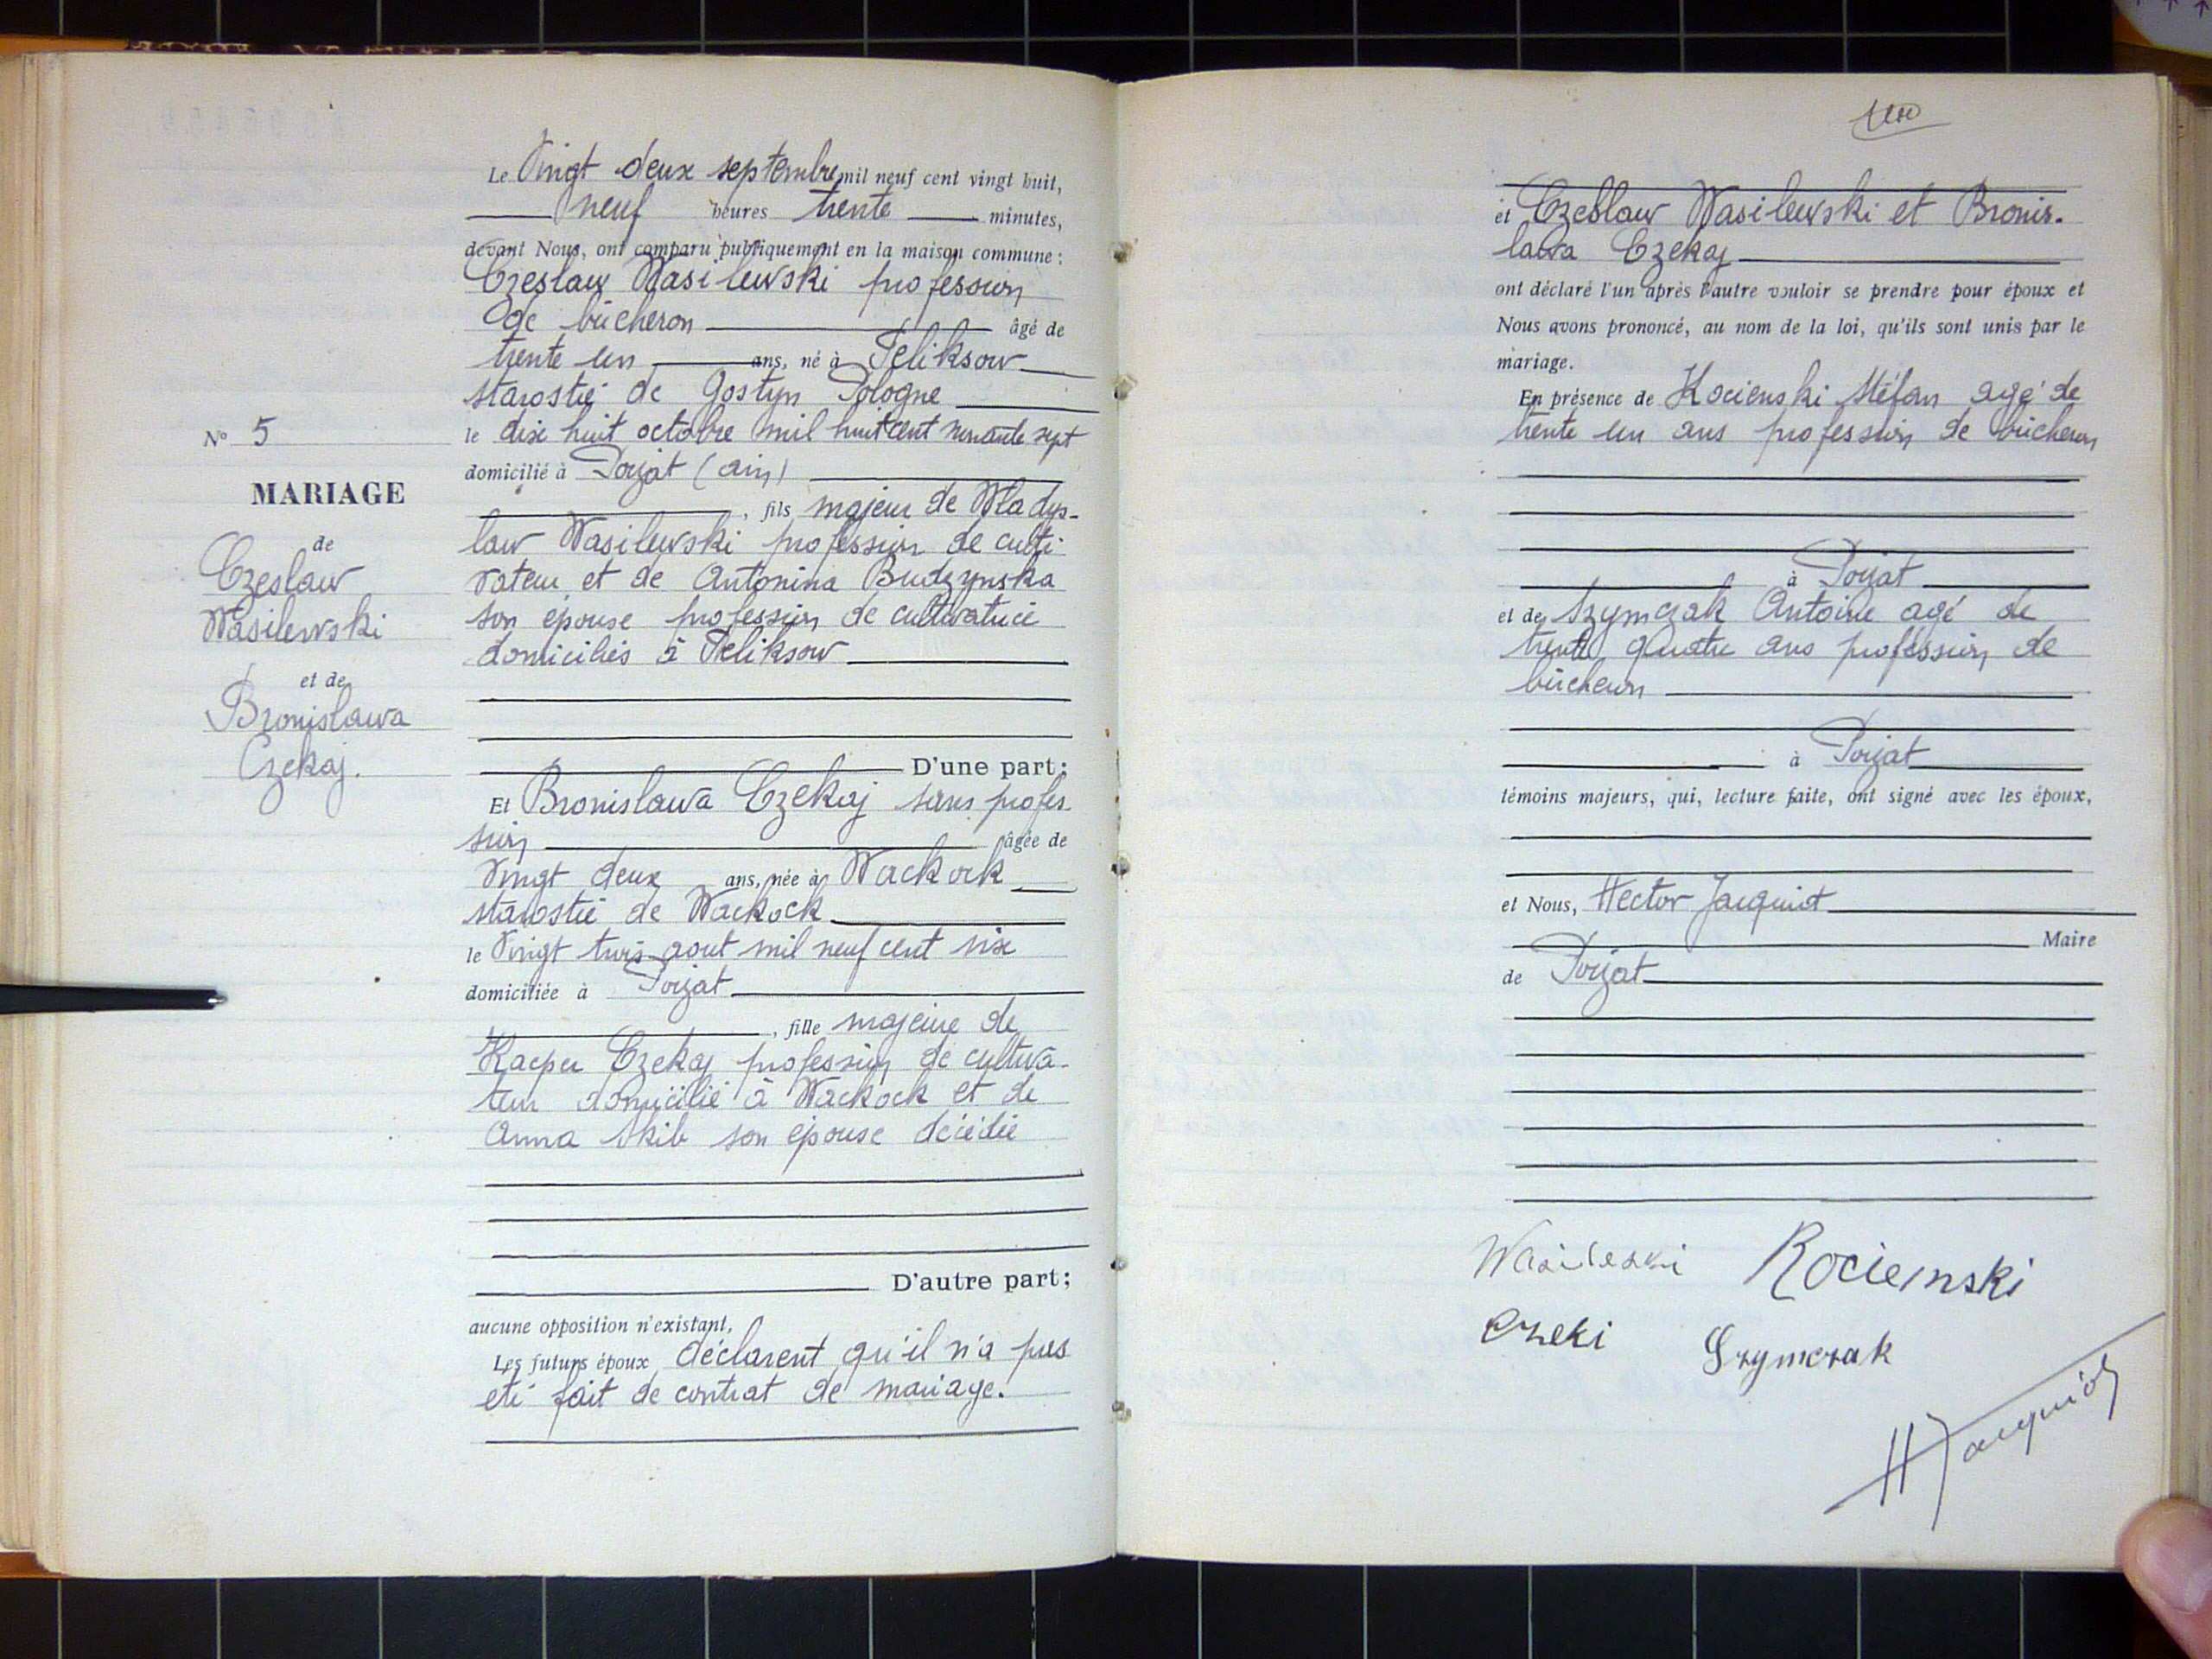 N° 5
MARIAGE
de
Czeslaw
Wasilewski
et de
Bronislawa
Czekaj.
Le Vingt deux septembre mil neuf cent vingt huit,
neuf heures trente minutes,
devant Nous, ont comparu publiquement en la maison commune :
Czeslaw Wasilewski profession
de bûcheron âgé de
trente un ans, né à Feliksow
starostie de Gostyn Pologne
le dix huit octobre mil huit cent nonante sept
domicilié à Poizat (ain)
, fils majeur de Wladys-
law Wasilewski profession de culti-
vateur et de Antonina Budzynska
son épouse profession de cultivatrice
domiciliés à Feliksow
D'une part ;
Et Bronislawa Czekaj sans profes
sion âgée de
Vingt deux ans, née à Wackock
starostie de Wackock
le Vingt trois aout mil neuf cent six
domiciliée à Poizat
, fille majeure de
Kacper Czekaj profession de cultiva-
teur domicilié à Wackock et de
Anna Skib son épouse décédée
D'autre part ;
aucune opposition n'existant,
Les futurs époux déclarent qu'il n'a pas
eté fait de contrat de mariage.
et Czeslaw Wasilewski et Bronis-
lawa Czekaj
ont déclaré l'un après l'autre vouloir se prendre pour époux et
Nous avons prononcé, au nom de la loi, qu'ils sont unis par le
mariage.
En présence de Kocienski Stéfan agé de
trente un ans profession de bûcheron
à Poizat
et de Szymczak Antoine agé de
trente quatre ans profession de
bûcheron
à Poizat
témoins majeurs, qui, lecture faite, ont signé avec les époux,
et Nous, Hector Jacquiot
Maire
de Poizat
Wasileski Rociemski
Czeki Szymczak
H Jacquiot